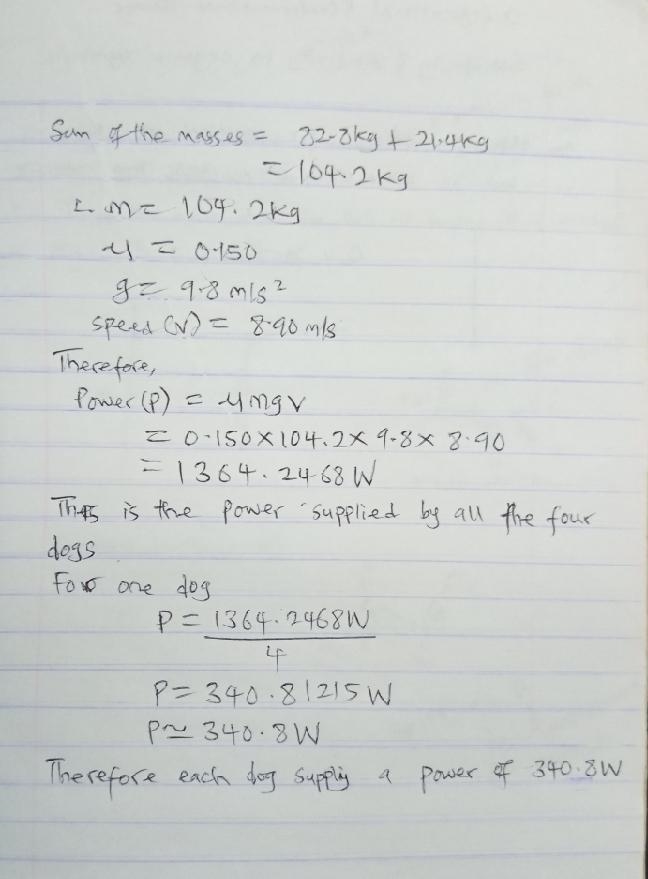 Sum of the masses = 82.8kg + 21.4kg
= 104.2kg
∴ m = 104.2kg
μ = 0.150
g = 9.8 m/s²
speed (v) = 8.90 m/s
Therefore,
Power (P) = μmgv
= 0.150 × 104.2 × 9.8 × 8.90
= 1364.2468 W
This is the power supplied by all the four
dogs
For one dog
P = 1364.2468W
4
P = 340.81215 W
P ≃ 340.8W
Therefore each dog supply a power of 340.8W